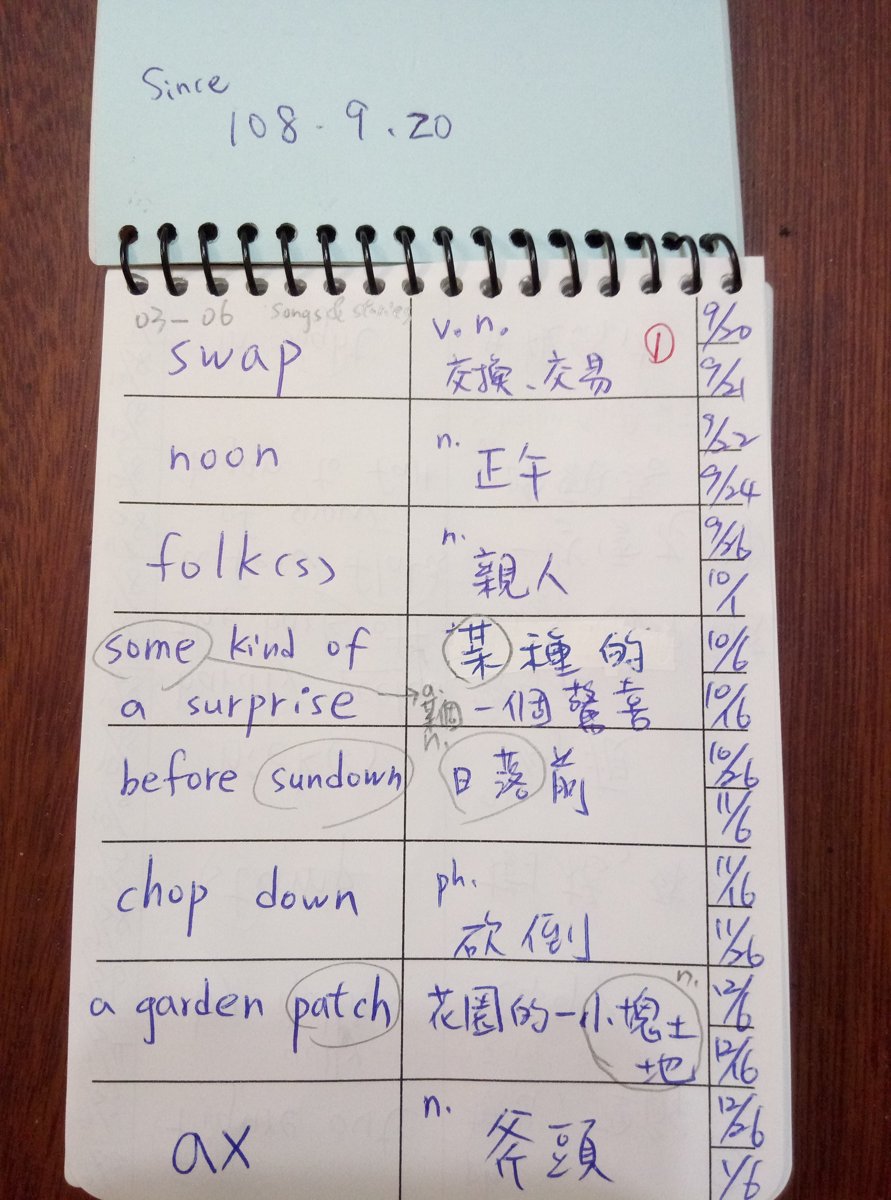 Since
108.9.20
03-06 songs & stories
swap
v. n. ①
交換、交易
9/20
9/21
noon
n. 正午
9/22
9/24
folk(s)
n. 親人
9/26
10/1
some kind of
a surprise
某種的
a. 某個
一個驚喜
10/6
10/16
before sundown
n.
日落前
10/26
11/6
chop down
ph.
砍倒
11/16
11/26
a garden patch
n.
花園的一小塊土
地
12/6
12/16
ax
n. 斧頭
12/26
1/6